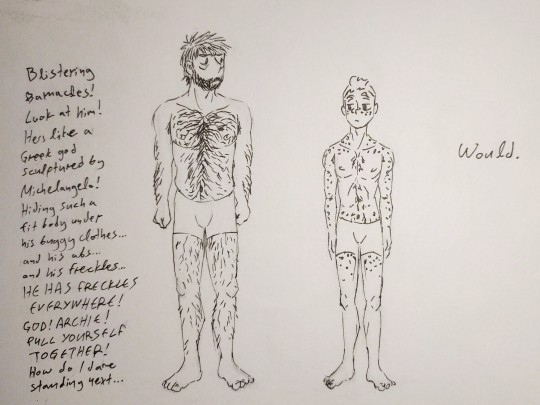 Blistering
Barnacles!
Look at him!
He's like a
Greek god
sculptured by
Michelangelo!
Hiding such a
fit body under
his buggy clothes...
and his abs...
and his freckles...
HE HAS FRECKLES
EVERYWHERE!
GOD! ARCHIE!
PULL YOURSELF
TOGETHER!
How do I dare
standing next...
Would.